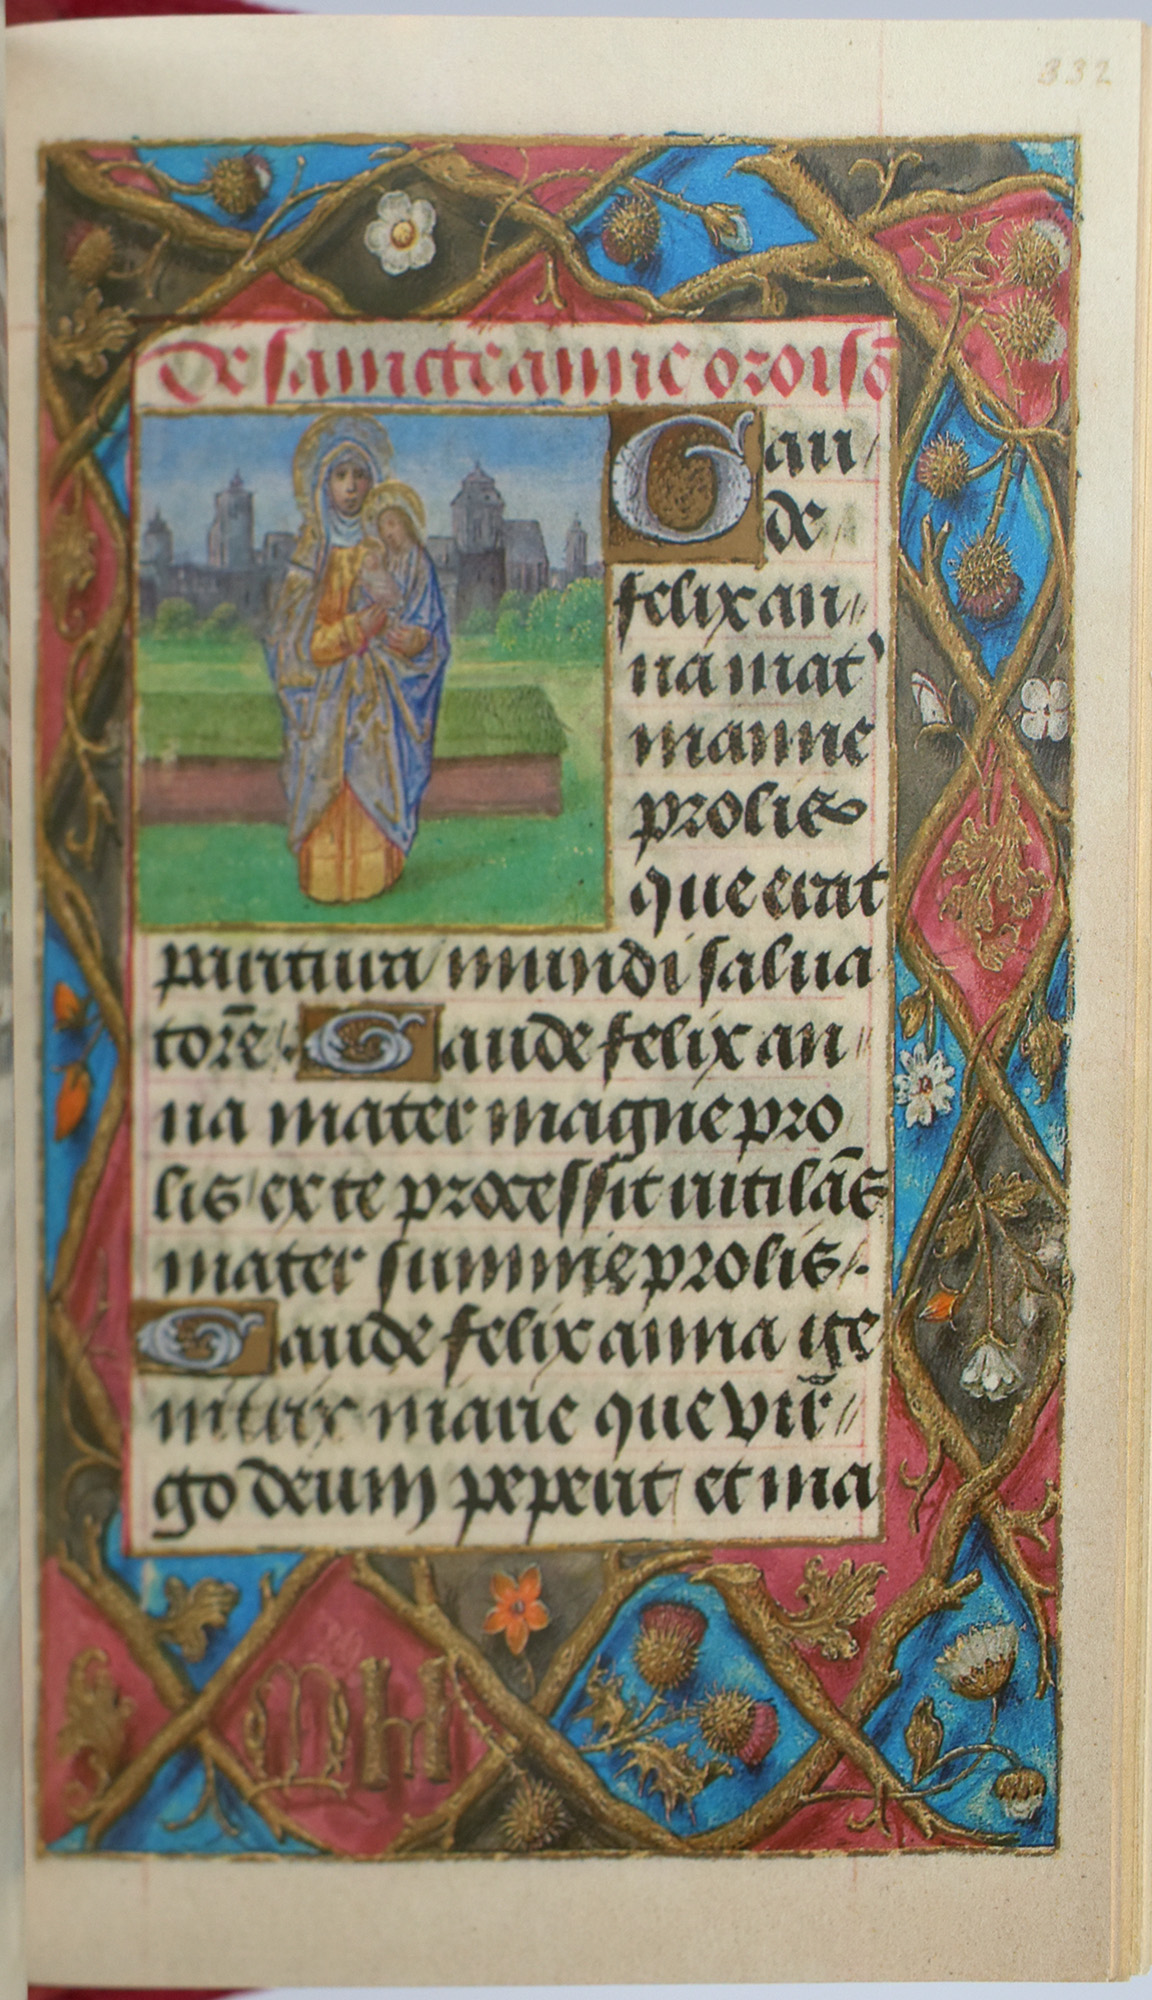 332
De sancte anne oroisō
Gau/
de
felix an//
na mat'
magne
prolis
que erat
paritura mundi salua
torē. Gaude felix an//
na mater magne pro
lis ex te processit rutilās
mater summe prolis.
Gaude felix anna ge
nitrix marie que vir̄//
go deum peperit et ma
MH